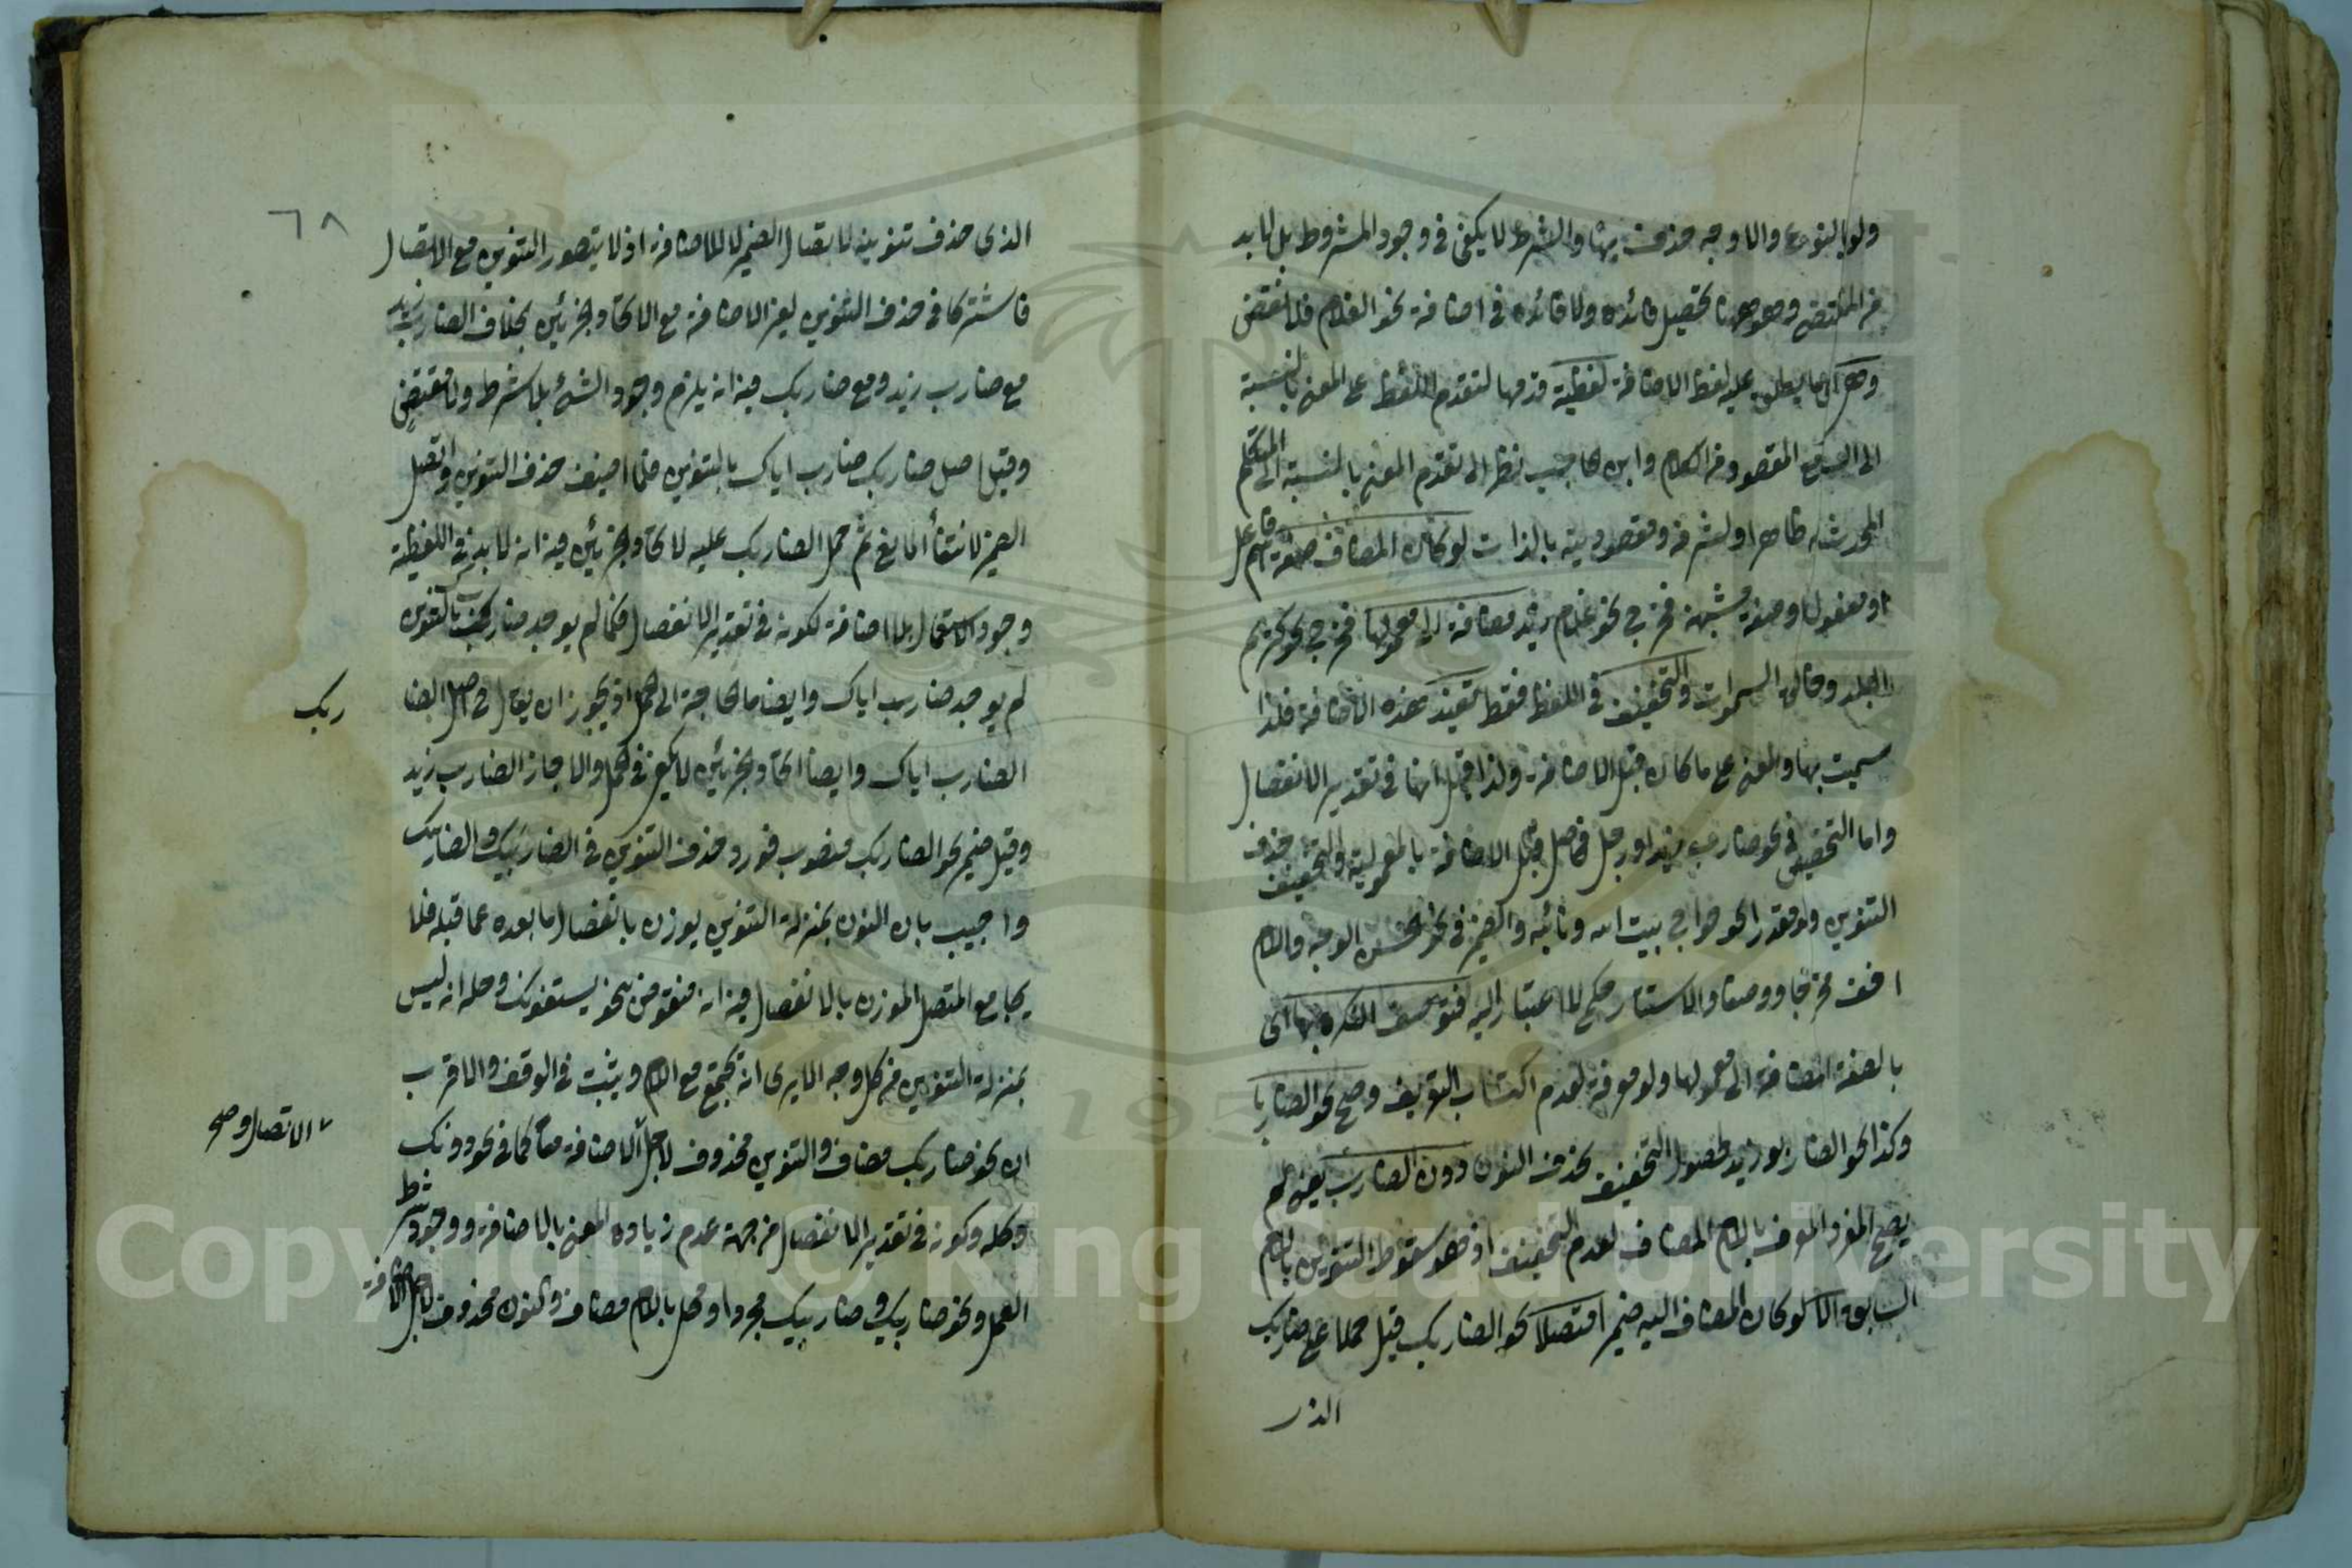 ولو بالنوع والاوجه حذف بهنا والشرط لا يكفى فى وجود المشروط بل لا بد
من المقتضى وهو ههنا تحصيل فائدة ولا فائدة فى اضافة نحو الغلام فلا نقض
وهى اى ما يطلق عليه لفظ الاضافة لفظية قدمها لتقدم اللفظ على المعنى بالنسبة
الى السامع المقصود من الكلام وابن الحاجب نظر الى تقدم المعنى بالنسبة الى المتكلم
المحدث له ظاهرا ولشرفه ومقصوديته بالذات لو كان المضاف صفة اسم فاعل
او مفعول او صفة مشبهة فخرج نحو غلام زيد مضافة الى معمولها فخرج نحو كريم
البلد وخالق السموات والتخفيف فى اللفظ فقط تفيد هذه الاضافة فلذا
سميت بها والمعنى على ما كان قبل الاضافة ولذا قيل انها فى تقدير الانفصال
واما التخصيص فى نحو ضارب زيد او رجل فحاصل قبل الاضافة بالمعمولية والتخفيف بحذف
التنوين ولو مقدرا نحو حواج بيت الله ونائبه والضمير فى نحو الحسن الوجه واللام
اخف مخرجا ووصفا والاستتار حكم لا اعتبار اليه فتوصف النكرة بها اى
بالصفة المضافة الى معمولها ولو معرفة لعدم اكتساب التعريف وصح نحو الضاربا
وكذا نحو الضاربو زيد لحصول التخفيف بحذف النون دون الضارب يعنى لم
يصح المفرد المعرف باللام المضاف لعدم التخفيف اذ هو سقوط التنوين باللام
السابقة الا لو كان المضاف اليه ضميرا متصلا نحو الضاربك قيل حملا على ضاربك
الذى
٦٨
الذى حذف تنوينه لاتصال الضمير لا للاضافة اذ لا يتصور التنوين مع الاتصال
فاشتركا فى حذف التنوين لغير الاضافة مع الاتحاد الجزئين بخلاف الضارب زيد
مع ضارب زيد ومع ضاربك فيه انه يلزم وجود الشئ بلا شرط ولا مقتضٍ
وقيل اصل ضاربك ضارب اياك بالتنوين فلما اضيف حذف التنوين واتصل
الضمير لانتفاء المانع ثم حمل الضاربك عليه لاتحاد الجزئين فيه انه لا بد فى اللفظية
وجود الاستعمال بلا اضافة لكونه فى تقدير الانفصال فكما لم يوجد ضاربك بالتنوين
لم يوجد ضارب اياك وايضا ما الحاجة الى الحمل اذ يجوز ان يقال فى اصل الضا
ربك
الضارب اياك وايضا اتحاد الجزئين لا يكفى فى الحمل والا جاز الضارب زيد
وقيل ضمير نحو الضاربك منصوب فورد حذف التنوين فى الضاربيك والضاربك
واجيب بان النون بمنزلة التنوين يوزن بانفصال ما بعده عما قبله فلا
يجامع المتصل الموزن بالانفصال فيه انه منقوض بنحو يستغفونك وحله انه ليس
بمنزلة التنوين من كل وجه الا يرى انه تجتمع مع اللام ويثبت فى الوقف والاقرب
ان نحو ضاربك مضاف والتنوين محذوف لاجل الاضافة معا كما فى نحو دونك
٧ الاتصال و صح
وحله وكونه فى تقدير الانفصال من جهة عدم زيادة المعنى بالاضافة ووجود شرط
العمل ونحو ضاربك وضاربيك مجردا ومحلى باللام مضاف والنون محذوف لاجل الاضافة